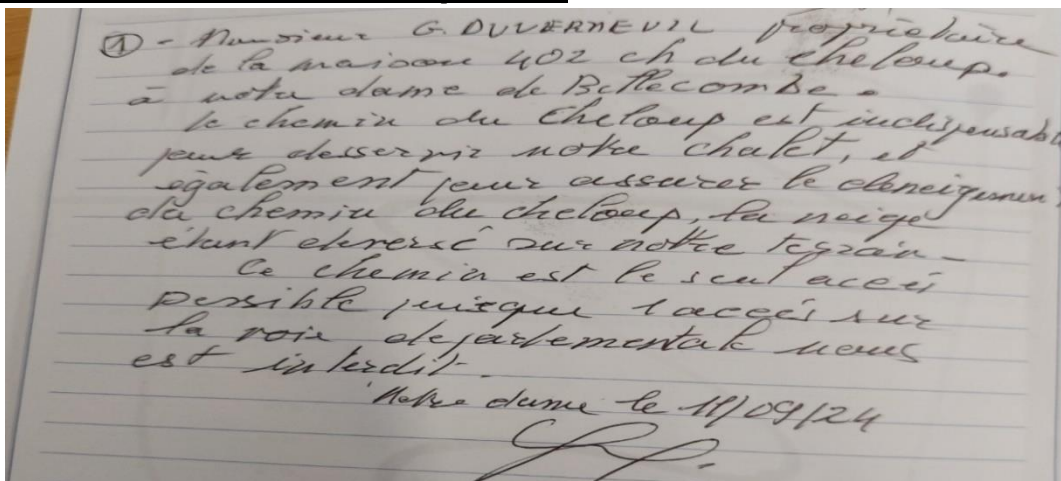 ① - Monsieur G. DUVERNEUIL propriétaire
de la maison 402 ch du Cheloup.
à notre dame de Bellecombe.
le chemin du Cheloup est indispensabl
pour desservir notre chalet, et
également pour assurer le deneigement
du chemin du cheloup, la neige
étant deversé sur notre terrain -
Ce chemin est le seul accès
possible puisque l accès sur
la voie departementale nous
est interdit.
Notre dame le 11/09/24